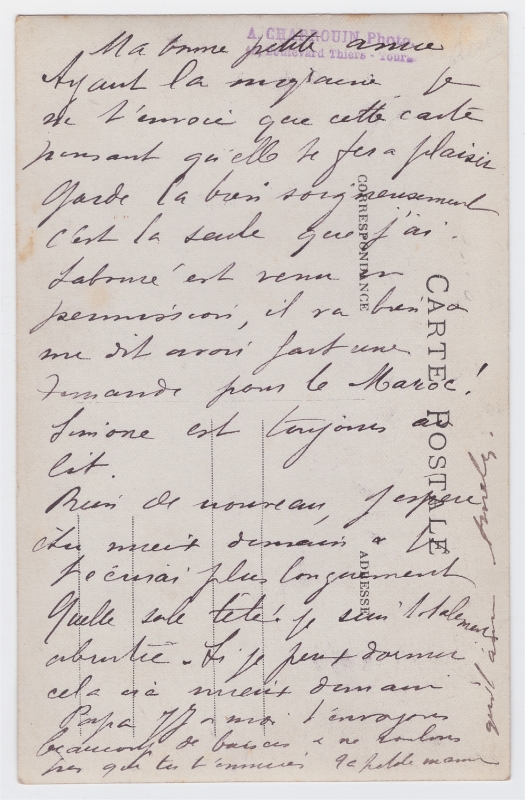 A. CHABROUIN Photo
Boulevard Thiers - Tours
Ma bonne petite amie
Ayant la migraine je
ne t'envoie que cette carte
pensant qu'elle te fera plaisir
Garde la bien soigneusement
c'est la seule que j'ai.
est venu en
permission, il va bien &
me dit avoir fait une
demande pour le Maroc!
Simone est toujours au
lit.
Rien de nouveau, j'espère
être mieux demain &
t'écrirai plus longuement
Quelle sale tête! je suis totalement
abrutie. Si je peux dormir
cela ira mieux demain
Papa JJ & moi t'envoyons
beaucoup de baisers & ne voulons
pas que tu t'ennuies Ta petite maman
qui t'aime
CARTE POSTALE
CORRESPONDANCE
ADRESSE